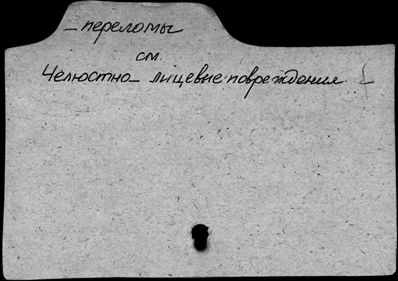 — переломы
см.
Челюстно-лицевые повреждения.